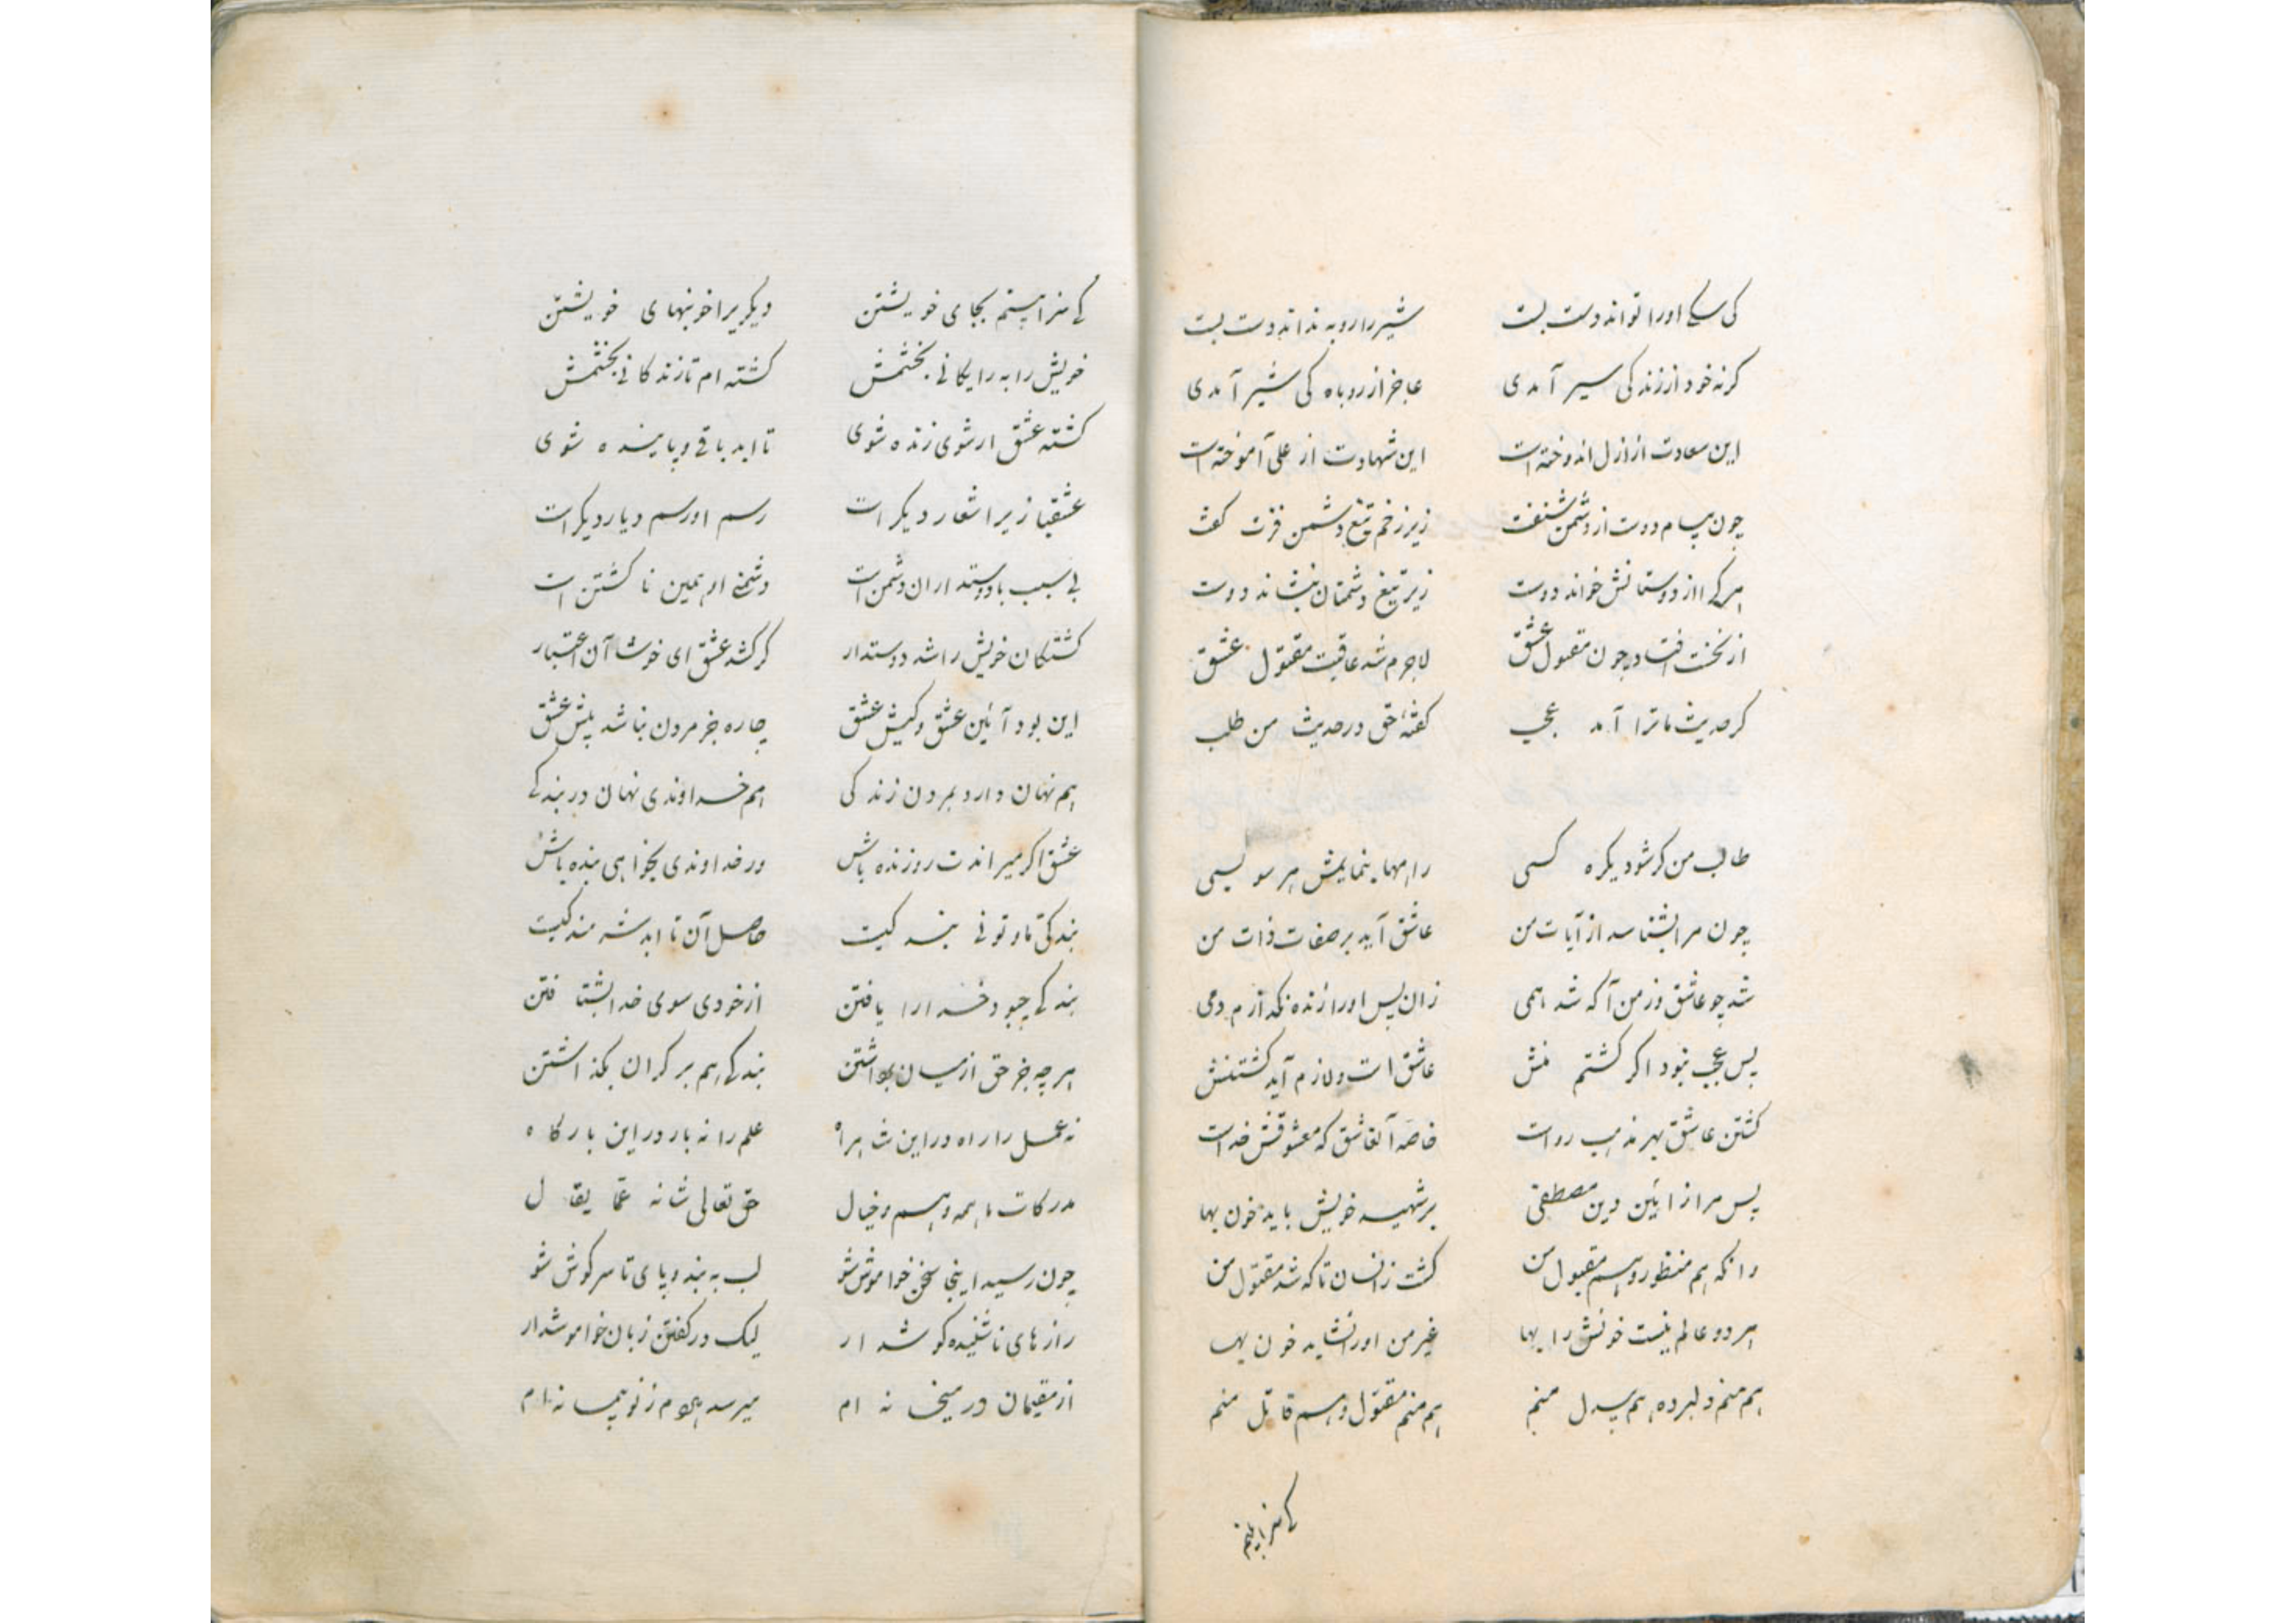 کی سکی اورا تواند دست بست    شیر را روبه نداند دست بست
کرنه خود از زندکی سیر آمدی    عاجز از روباه کی شیر آمدی
این سعادت از ازل اندوخته است    این شهادت از علی آموخته است
چون پیام دوست از دشمن شنفت    زیر زخم تیغ دشمن فزت کفت
هرکه را از دوستانش خواند دوست    زیر تیغ دشمنان بنشاند دوست
از نخست افتاد چون مقبول عشق    لاجرم شد عاقبت مقتول عشق
کر حدیث ما ترا آمد عجب    کفتهٔ حق در حدیث من طلب
طالب من کر شود یکره کسی    راهها بنمایمش هر سو بسی
چون مرا بشناسد از آیات من    عاشق آید بر صفات ذات من
شد چو عاشق وز من آکه شد همی    زان پس اورا زنده نکذارم دمی
پس عجب نبود اکر کشتم منش    عاشق است و لازم آید کشتنش
کشتن عاشق بهر مذهب رواست    خاصه آنعاشق که معشوقش خداست
پس مرا از ائین دین مصطفی    بر شهید خویش باید خون بها
وانکه هم منظور و هم مقبول من    کشت زانسان تا که شد مقتول من
هر دو عالم نیست خونش را بها    غیر من اورا نشاید خون بها
هم منم دلبر ده هم بیدل منم    هم منم مقتول و هم قاتل منم
کی سزا بینم
کی سزا بینم بجای خویشتن    دیکریرا خونبهای خویشتن
خویش را به رایکانی بخشمش    کشته ام تا زندکانی بخشمش
کشته عشق ار شوی زنده شوی    تا ابد باقی و پاینده شوی
عشقبازیرا شعار دیکر است    رسم او رسم دیار دیکر است
بی سبب با دوستداران دشمن است    دشمنی او همین نا کشتن است
کشتکان خویش را شد دوستدار    کر کشد عشق ای خوشا آن اعتبار
این بود آئین عشق و کیش عشق    چاره جز مردن نباشد پیش عشق
هم نهان دارد بمردن زندکی    هم خداوندی نهان در بندکی
عشق اکر میراندت رو زنده باش    ور خداوندی بخواهی بنده باش
بندکی تا و توئی بند کیت    حاصل آن تا ابد شرمندکیت
بندکی چبود خدا را یافتن    از خودی سوی خدا بشتافتن
هر چه جز حق از میان برداشتن    بندکی هم بر کران بکذاشتن
نه عمل را راه در این شاهراه    علم را نه بار در این بارکاه
مدرکات ما همه وهم و خیال    حق تعالی شانه عمّا یقال
چون رسید اینجا سخن خواموش شو    لب به بند و پای تا سر کوش شو
رازهای ناشنیده کوشدار    لیک در کفتن زبان خواموشدار
از مقیمان در میخانه ام    میرسد هر دم ز نو پیمانه ام